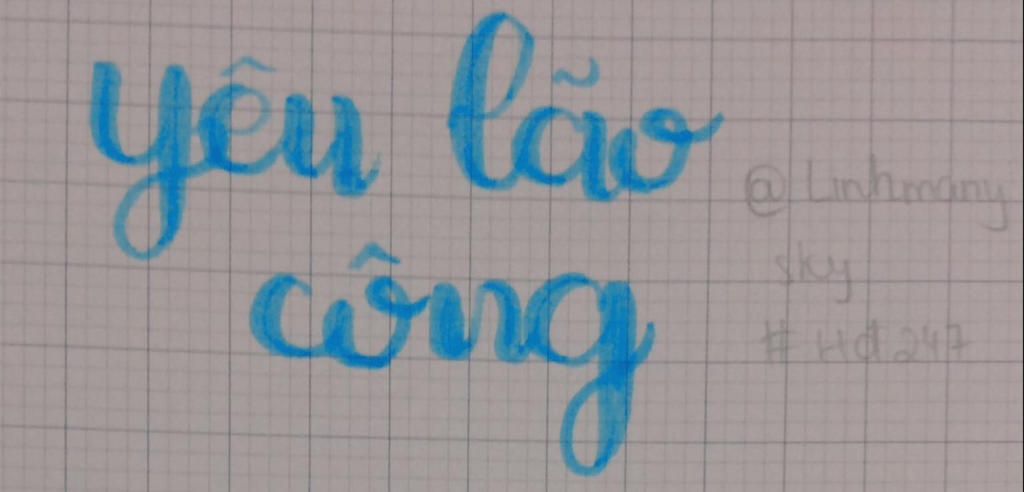 yêu lão
công
@Linhmany
sky
#Hđ247